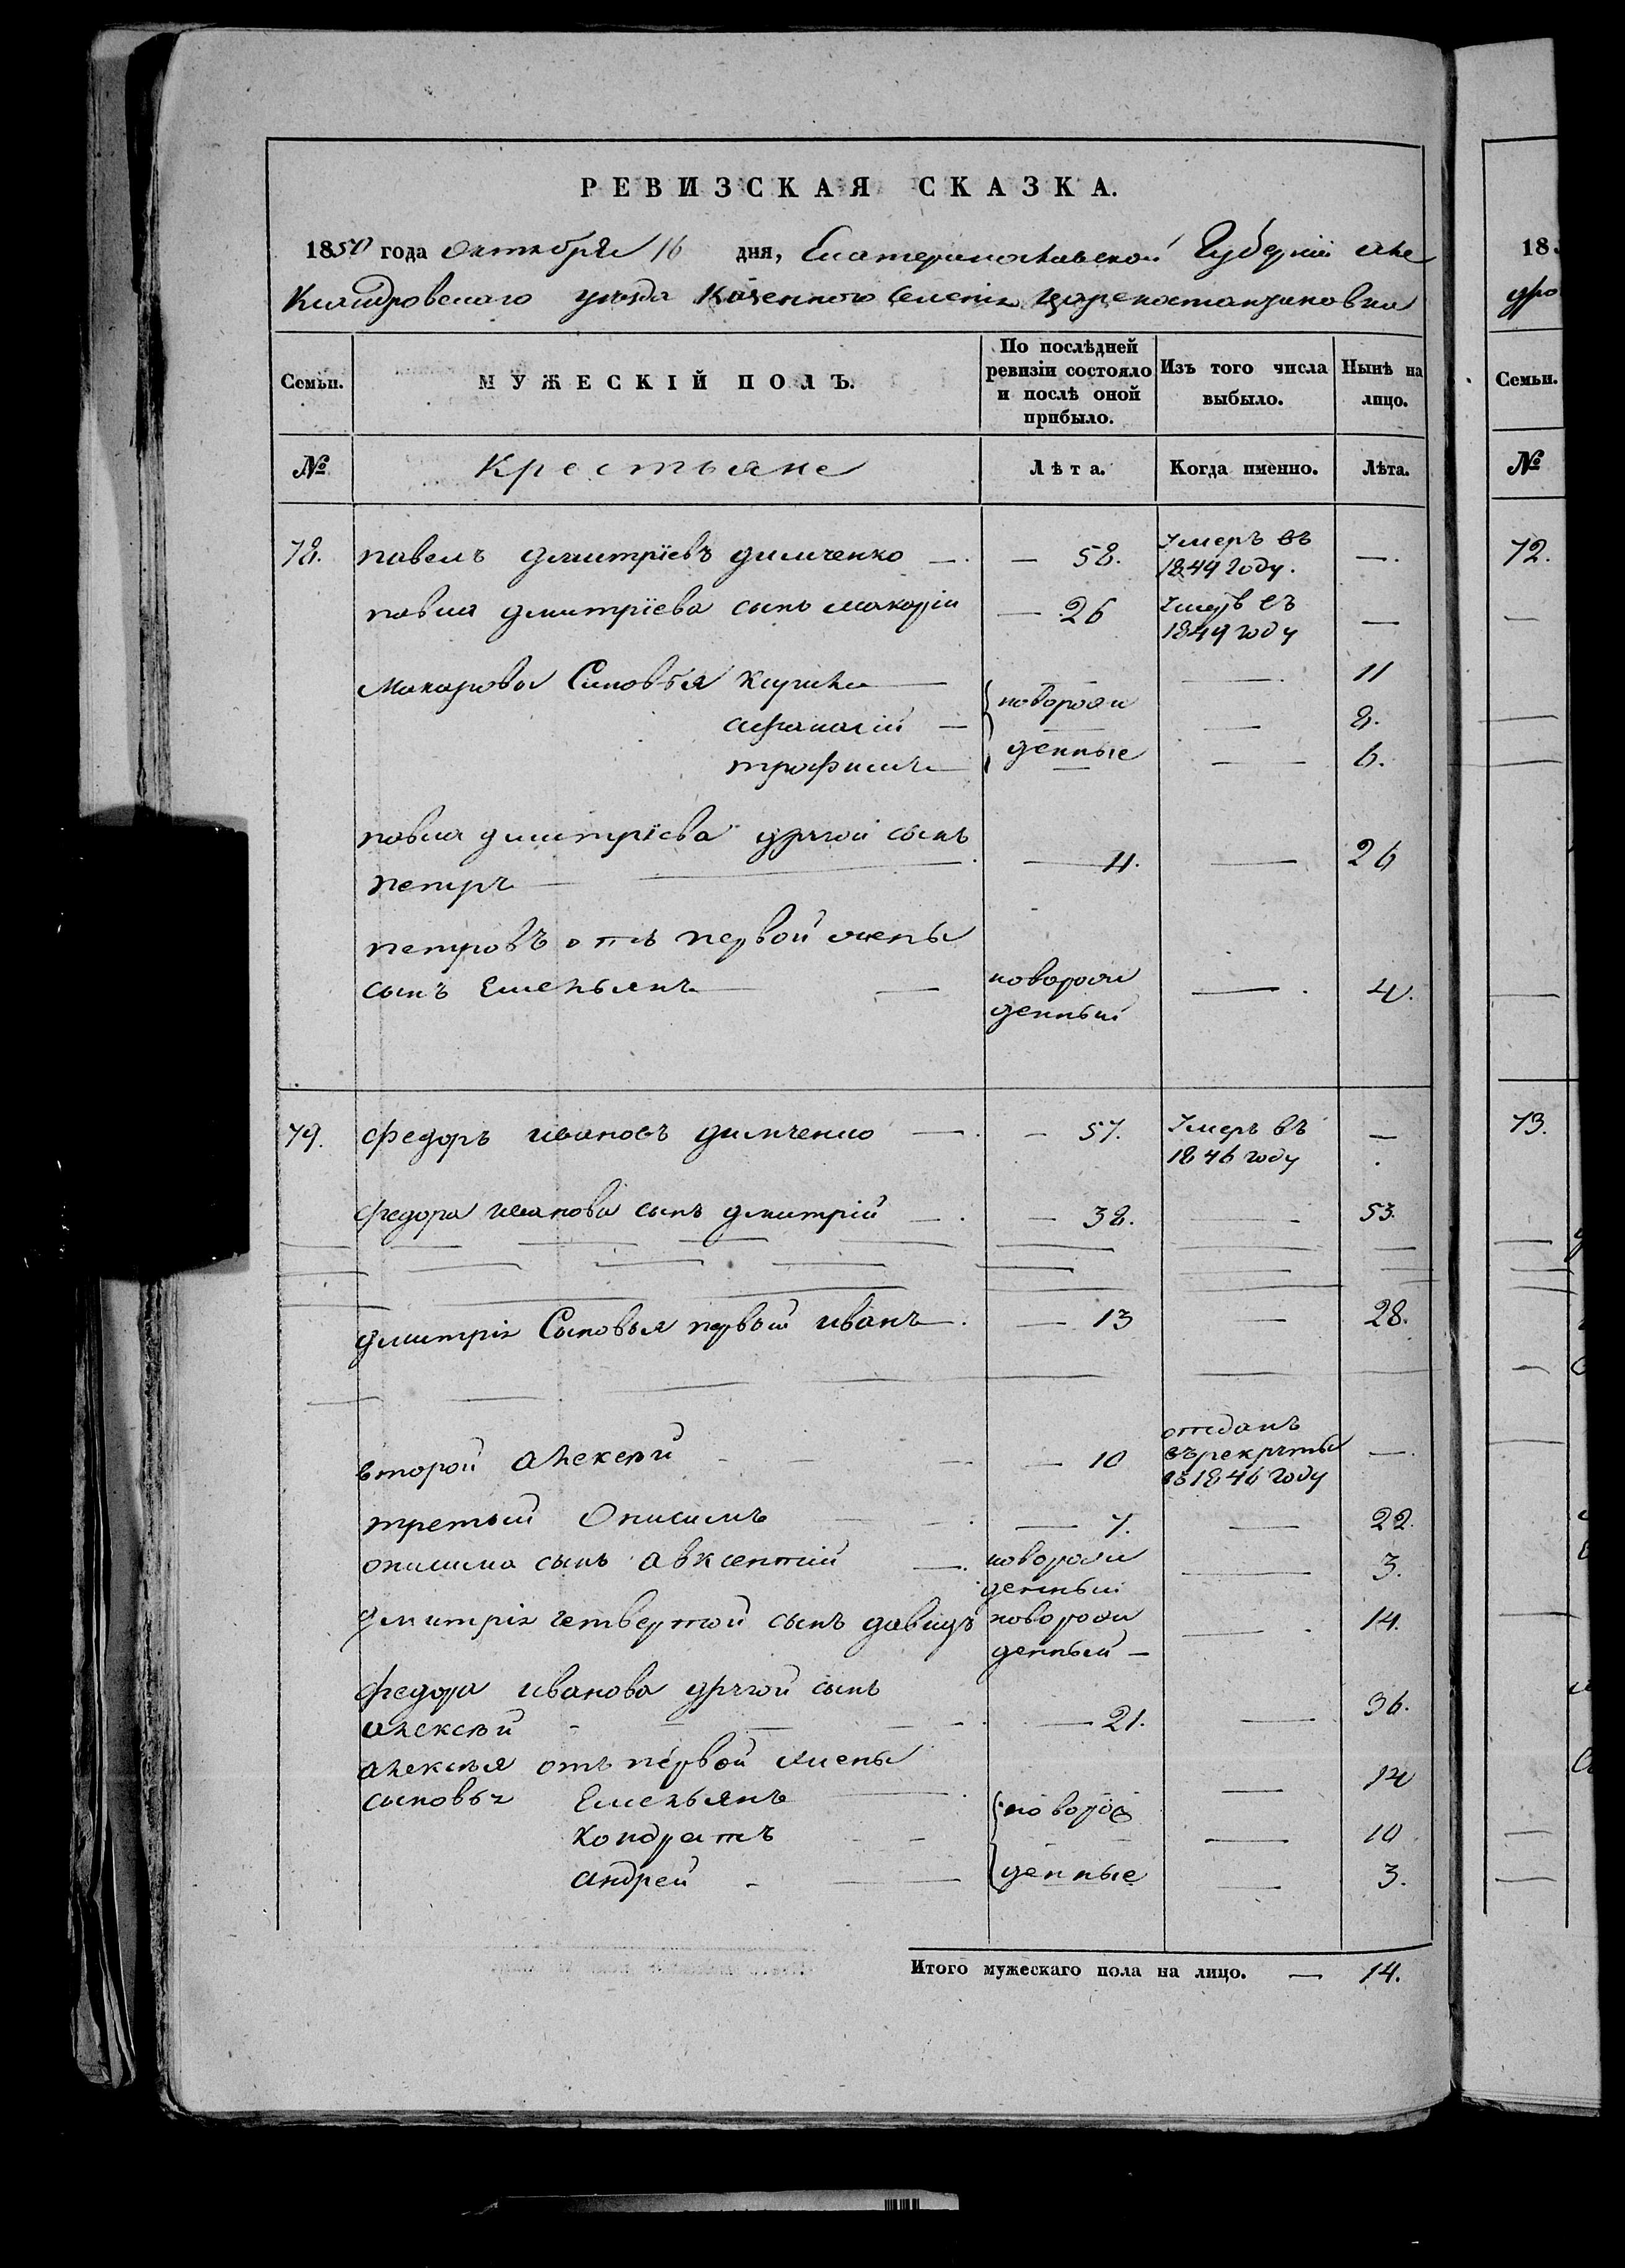 РЕВИЗСКАЯ СКАЗКА.
1850 года Октября 16 дня, Екатеринославской Губерніи Але
ксандровскаго уезда Казенного Селенія Цареконстантиновка
Семьи. МУЖЕСКІЙ ПОЛЪ. По послѣдней ревизіи состояло и послѣ оной прибыло. Изъ того числа выбыло. Нынѣ на лицо.
№ Крестьяне Лѣта. Когда именно. Лѣта.
72. павелъ дмитріевъ димченко — — 58. Умеръ въ 1849 году. —
павла дмитріева сынъ макарій — 26 Умеръ въ 1849 году —
Макаровы Сыновья Кирила — новорож — 11
афанасій — — 8.
трофимъ — денные — 6.
павла дмитріева другой сынъ
петръ — — 11. — 26
петровъ отъ первой жены
сынъ Емельянъ — новорож денный — 4.
79. федоръ ивановъ димченко — — 57. Умеръ въ 1846 году —
федора иванова сынъ дмитрій — — 38. — 53.
дмитрія Сыновья первый иванъ — — 13 — 28.
второй алексѣй — — 10 отданъ въ рекруты въ 1846 году —
третьій Онисимъ — — 7. — 22.
онисима сынъ авксентій — новорож денный — 3.
дмитрія четвертой сынъ давидъ новорож денный — — 14.
федора иванова другой сынъ
алексѣй — — 21. — 36.
алексѣя отъ первой жены
сыновья Емельянъ — новорож — 14
Кондратъ — — 10
андрей — денные — 3.
Итого мужескаго пола на лицо. — 14.
18
Семьи.
№
72.
73.